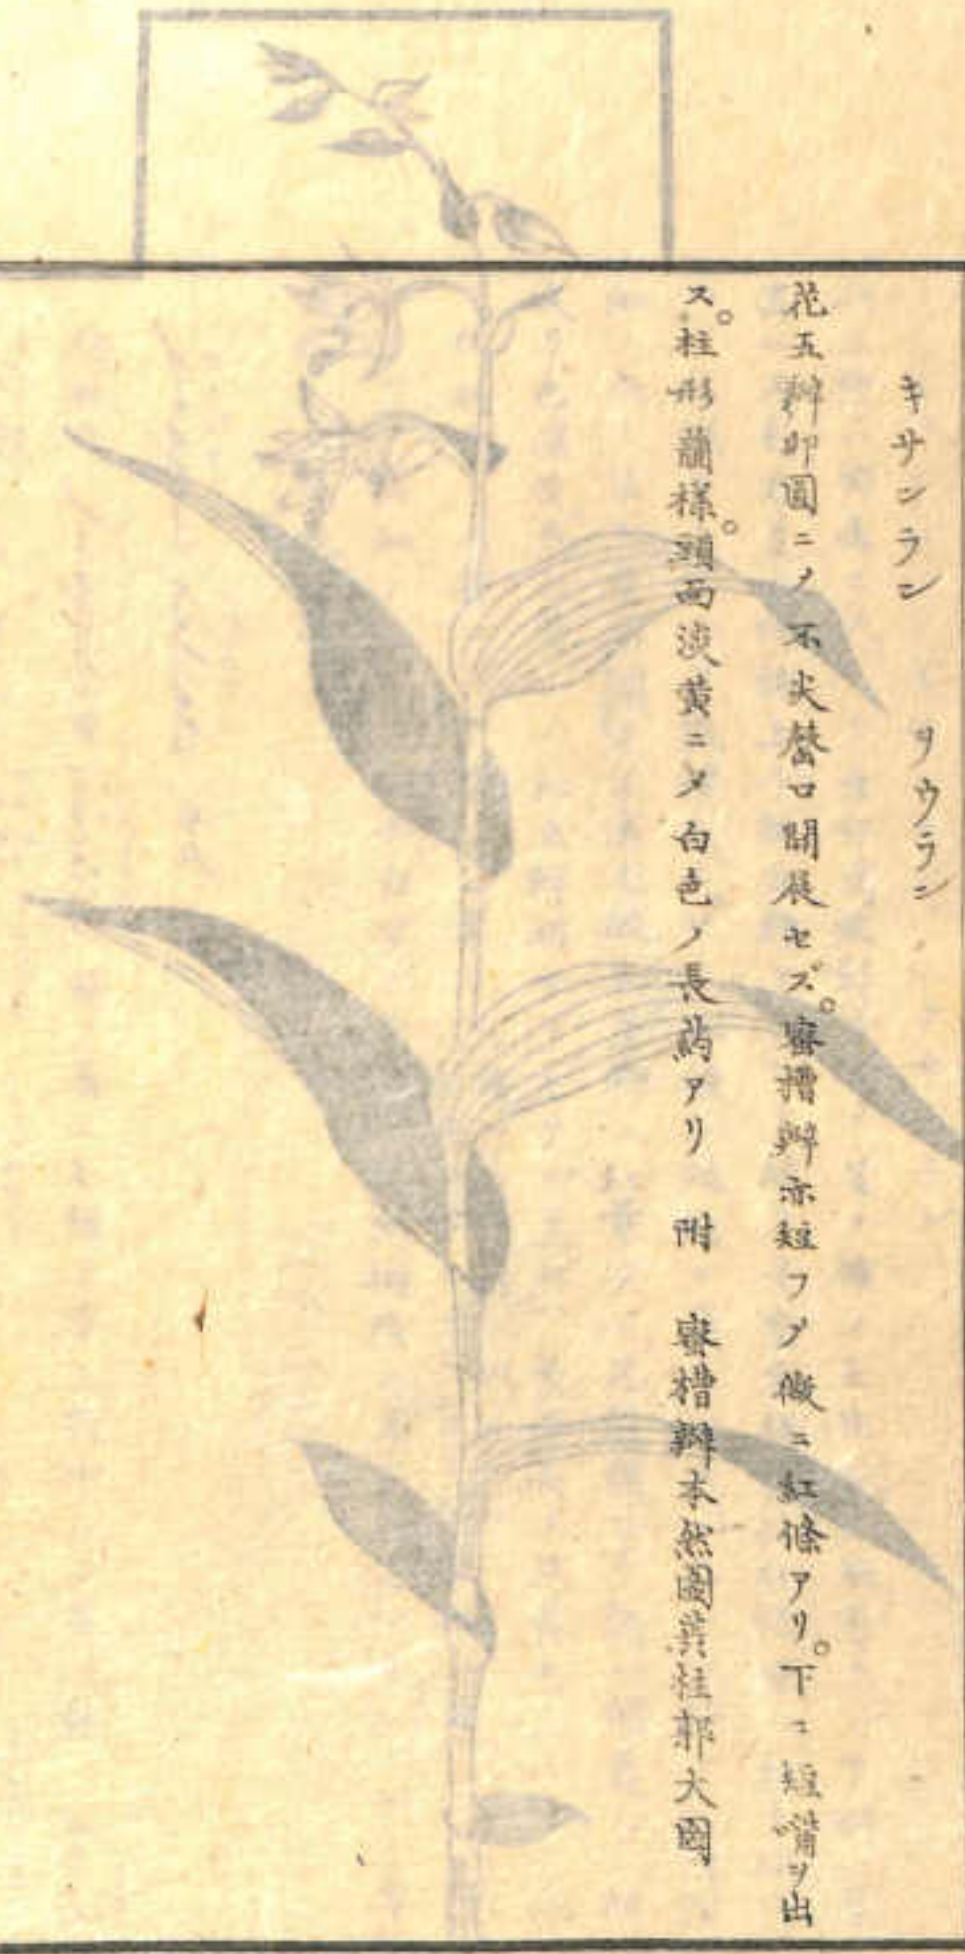 キサンラン　ワウラン
花五瓣卵圓ニメ不尖罄口開展セズ。蜜槽瓣亦短フメ微ニ紅條アリ。下ニ短嘴ヲ出
ス。柱形蘭様。頭面淡黄ニメ白色ノ長葯アリ　附　蜜槽瓣本然圖並柱郭大圖